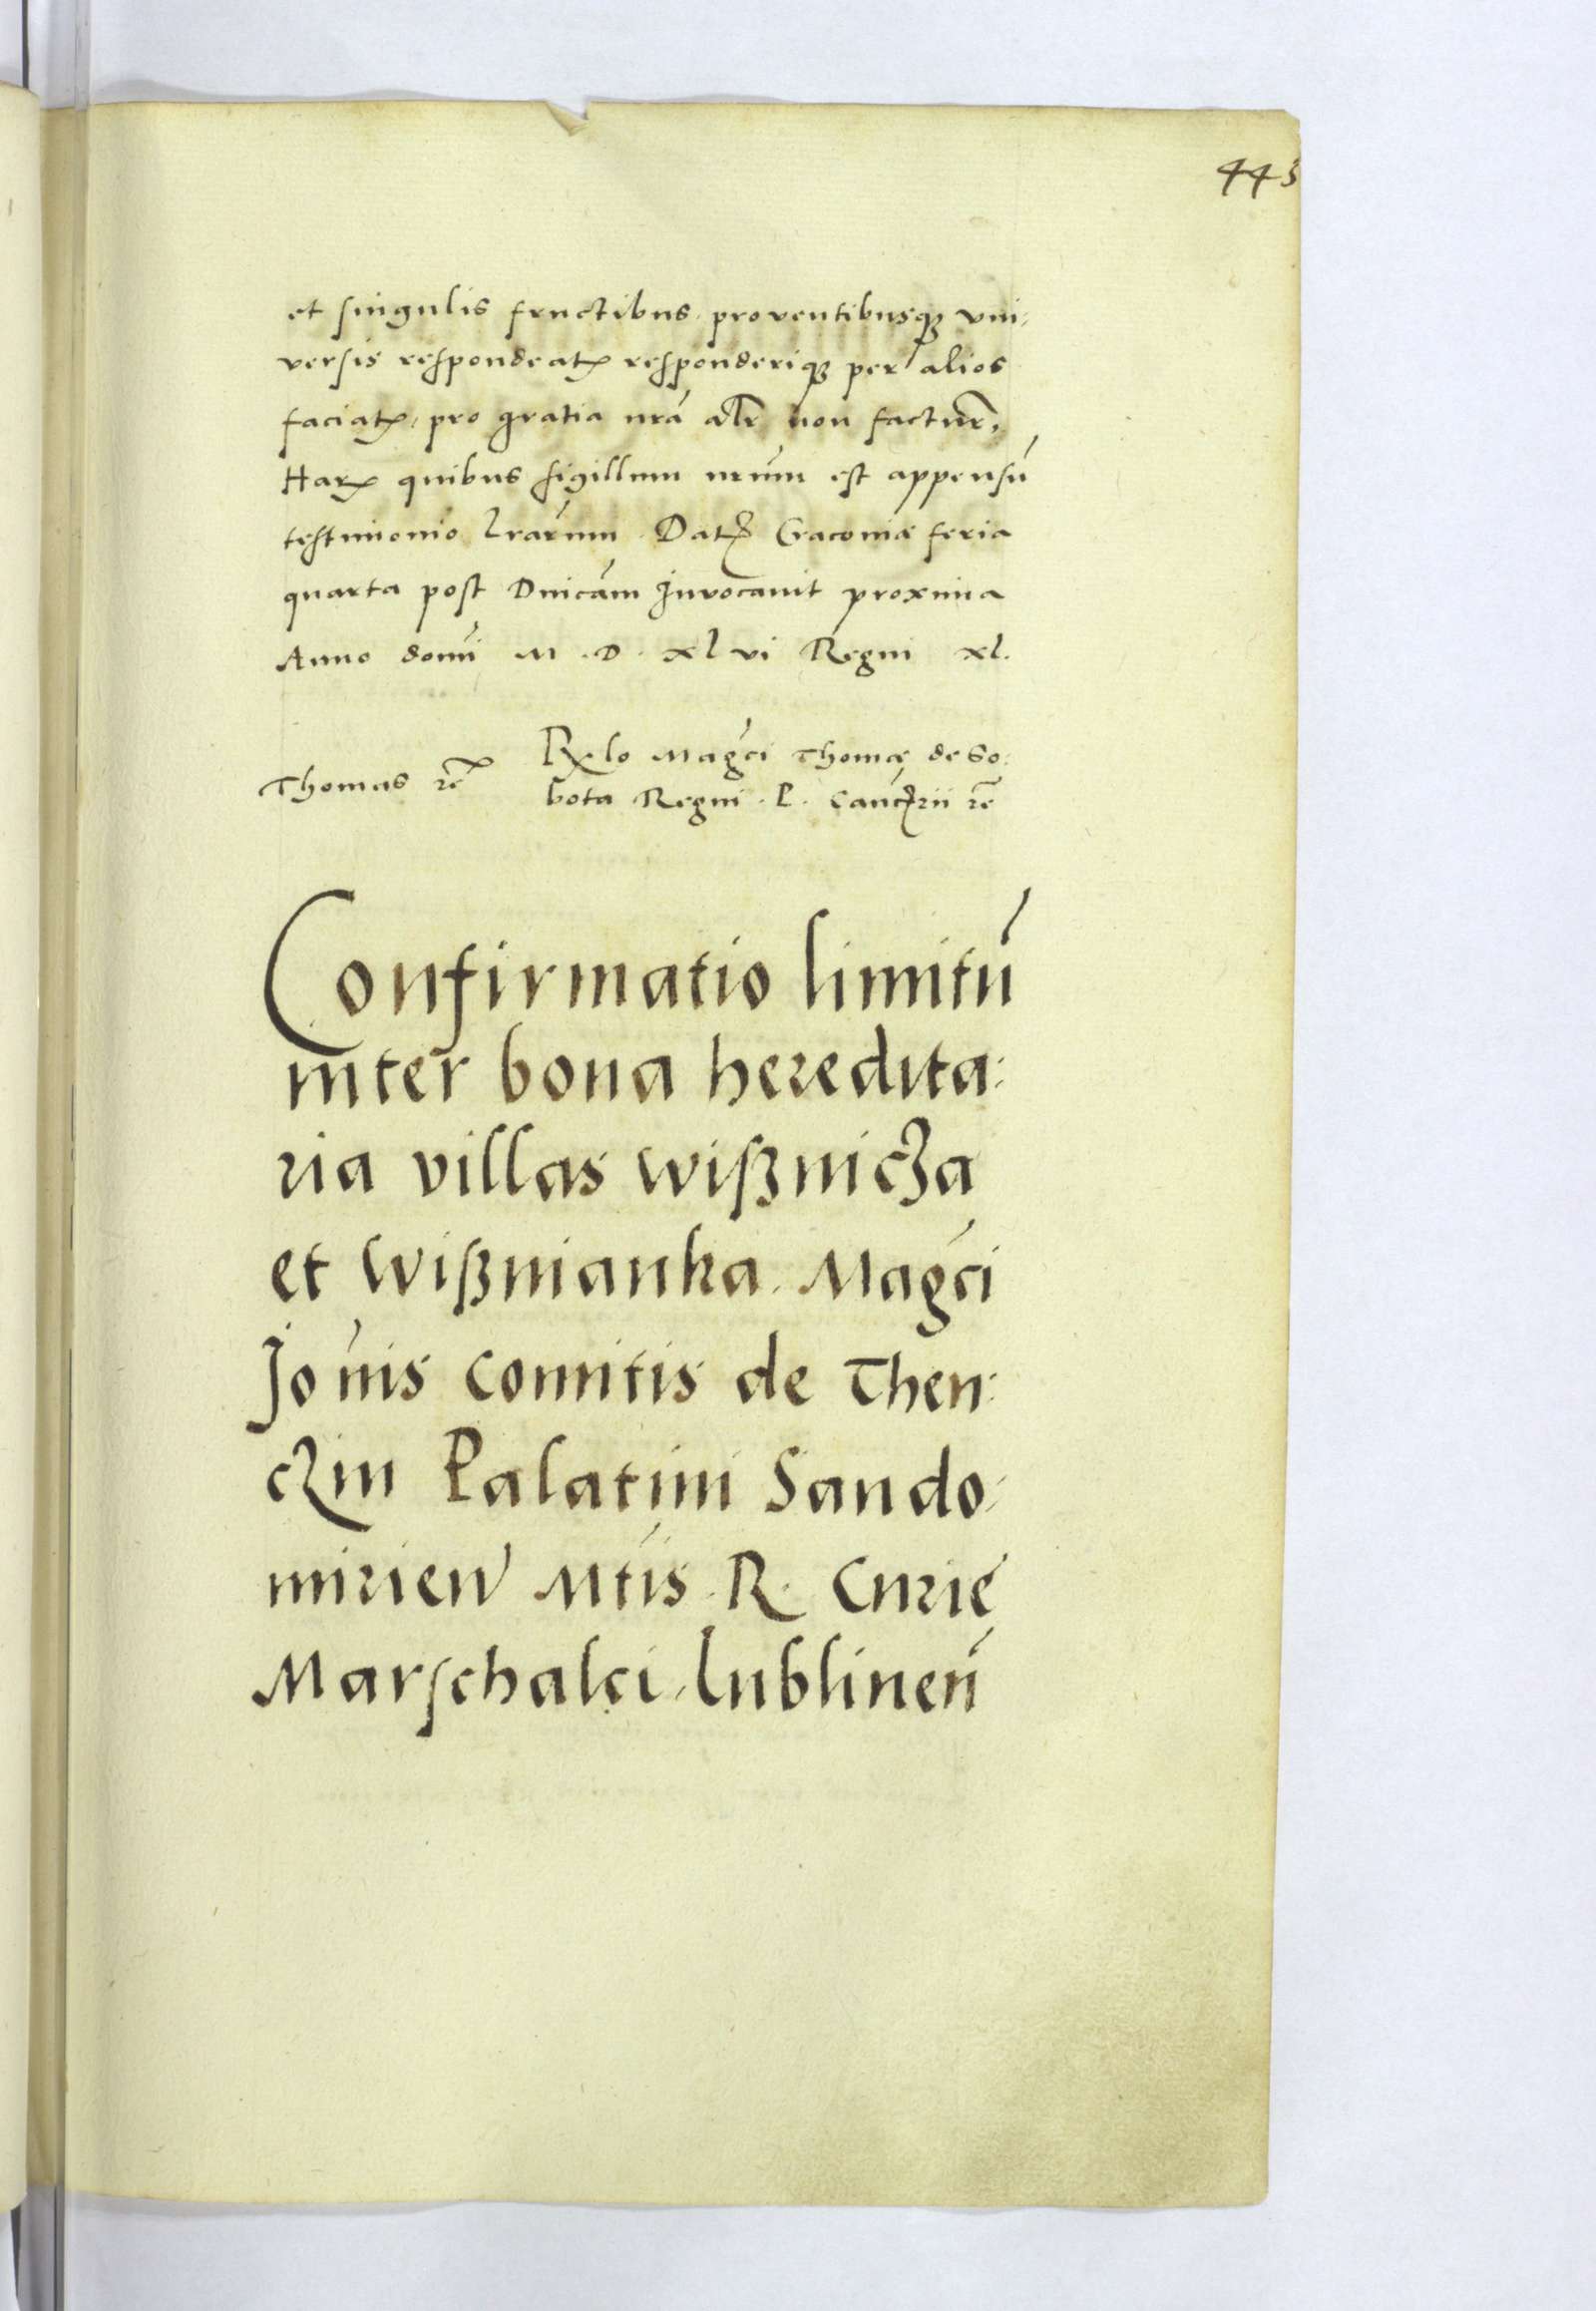 443
et singulis fructibus proventibusqꝫ vni⸗
versis respondeatꝭ responderiqꝫ per alios
faciatꝭ, pro gratia nrá alr non factur,
Harꝝ quibus sigillum nrúm est appensú
testimonio lrárum. Datꝭ Cracoviæ feria
quarta post Dnicám Invocavit proxima
Anno domí M.D.xlvi Regni xl.
Rlo Magći Thomæ de So⸗
Thomas rē
bota Regni .P. Cancꝭrii rē
Confirmatio limitú
inter bona heredita⸗
ria villas Wißnicza
et Wißnianka. Magći
Jońnis Comitis de Then⸗
czin Palatini Sando⸗
mirień Mtís .R. Curię
Marschalci, Lublineń